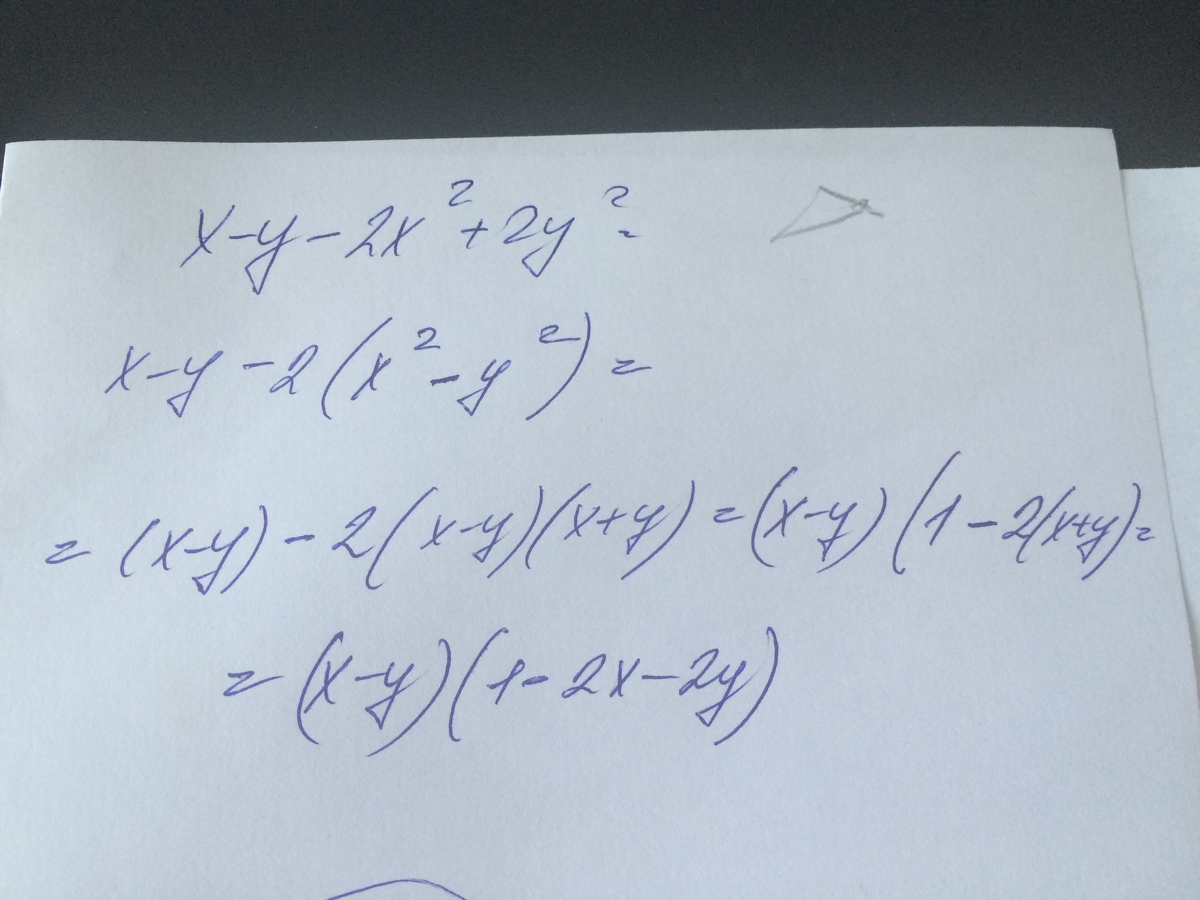 x-y-2x²+2y²=
x-y-2(x²-y²)=
=(x-y)-2(x-y)(x+y)=(x-y)(1-2(x+y)=
=(x-y)(1-2x-2y)